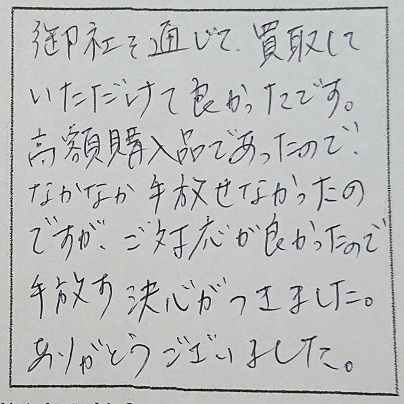 御社を通じて、買取して
いただけて良かったです。
高額購入品であったので、
なかなか手放せなかったの
ですが、ご対応が良かったので
手放す決心がつきました。
ありがとうございました。